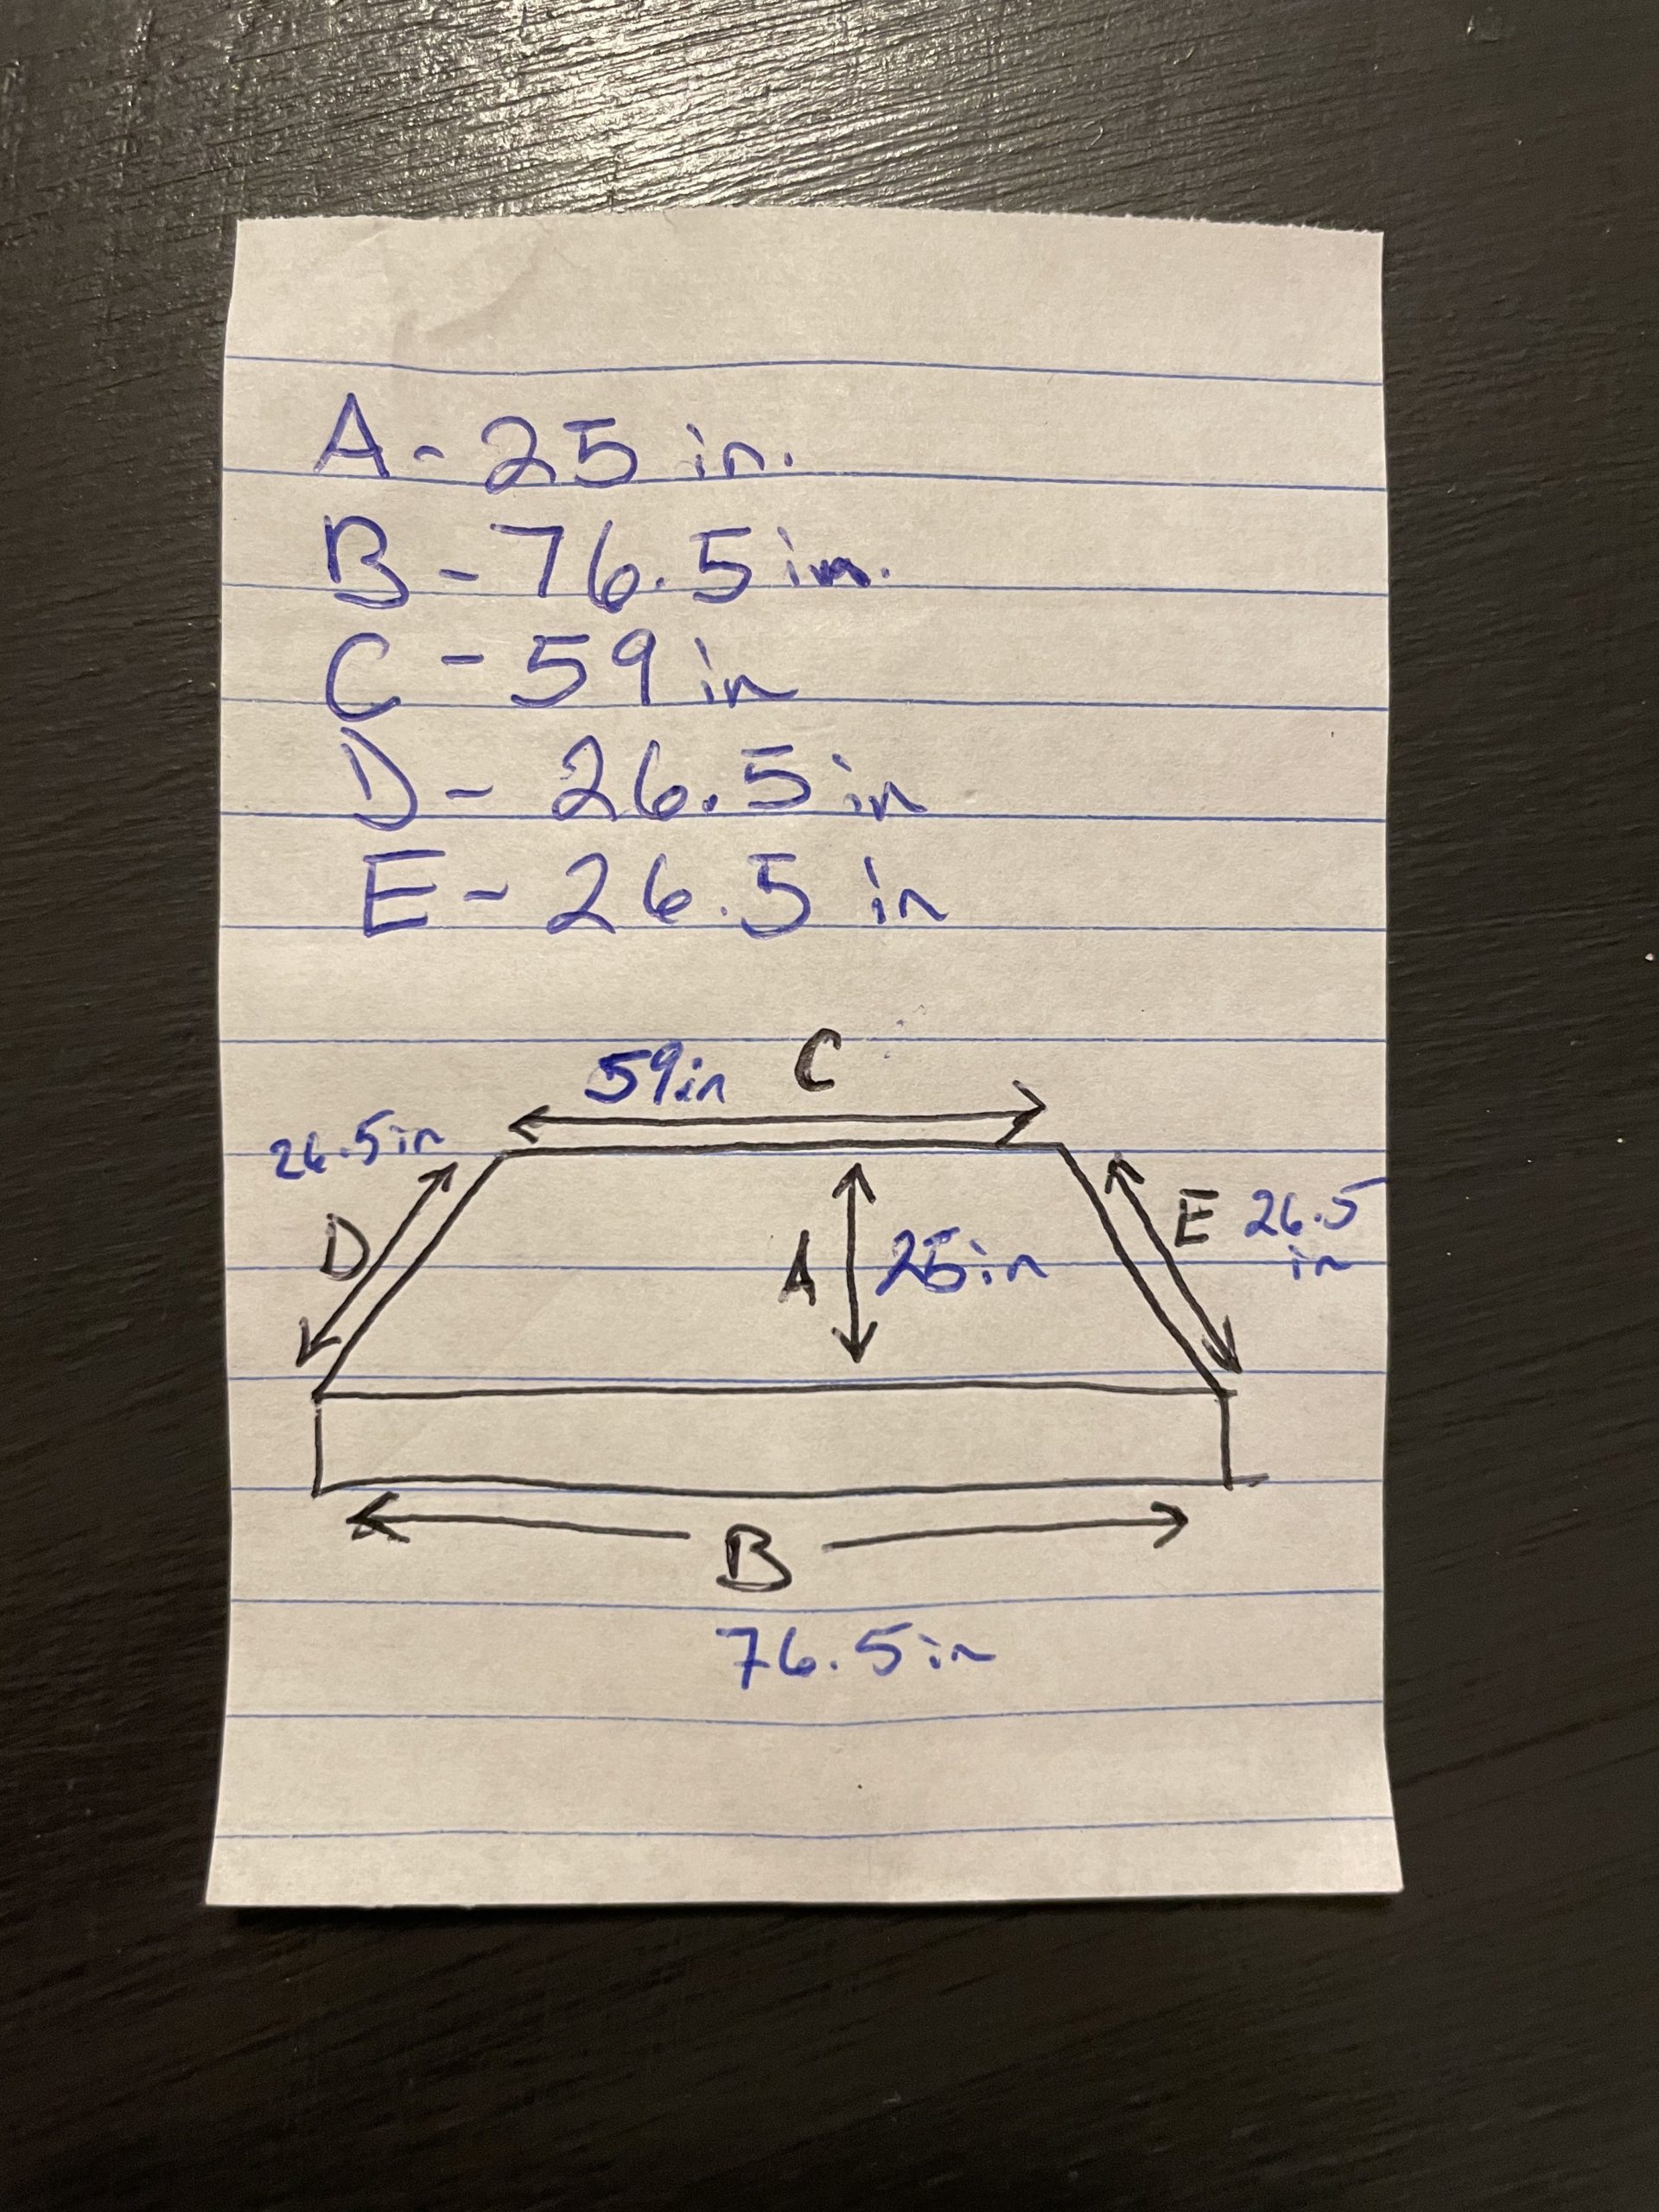 A - 25 in.
B - 76.5 in.
C - 59 in
D - 26.5 in
E - 26.5 in
59in C
26.5in
D
A 25in
E 26.5
in
B
76.5in